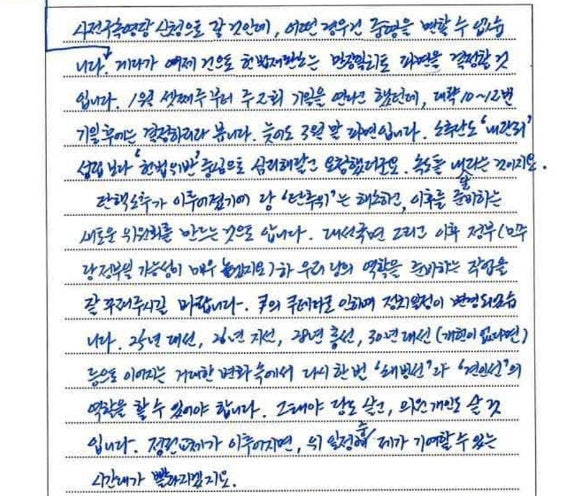 사전구속영장 신청으로 갈 것인데, 어떤 경우건 중형을 면할 수 없습
니다. 게다가 어제 건으로 헌법재판소는 만장일치로 파면을 결정할 것
입니다. 1월 셋째주부터 주2회 기일을 연다고 했던데, 대략 10~12번
기일 후에는 결정하리라 봅니다. 늦어도 3월 말 파면입니다. 소추단도 '내란죄'
성립보다 '헌법위반' 중심으로 심리해달라고 요청했더군요. 속도를 내라는 것이지요.
탄핵소추가 이루어졌기에 당 '탄추위'는 해소하고, 이후를 잘 준비하는
새로운 위원회를 만드는 것으로 압니다. 대선국면 그리고 이후 정부(민주
당 정부일 가능성이 매우 높겠지요)하 우리 당의 역할을 준비하는 작업을
잘 꾸려주시길 바랍니다. 尹의 쿠데타로 인하여 정치일정이 변경되었습
니다. 25년 대선, 26년 지선, 28년 총선, 30년 대선(개헌이 없다면)
등으로 이어지는 거대한 변화 속에서 다시 한 번 '쇄빙선'과 '견인선'의
역할을 할 수 있어야 합니다. 그래야 당도 살고, 의원 개인도 살 것
입니다. 정권교체가 이루어지면, 위 일정 중 제가 기여할 수 있는
시간대가 빨라지겠지요.